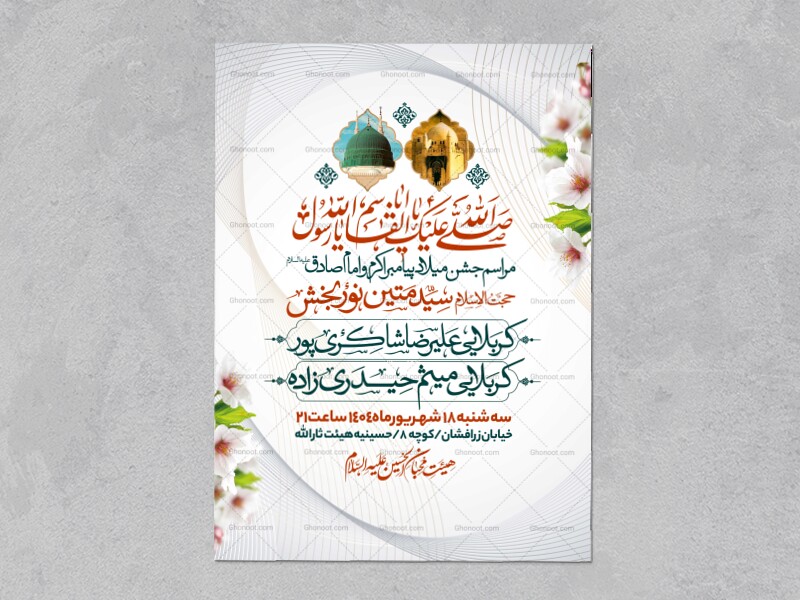 صلی الله علیک یا اباالقاسم یا رسول الله
مراسم جشن میلاد پیامبر اکرم و امام صادق علیه السلام
حجت الاسلام سید متین نوربخش
کربلایی علیرضا شاکری پور
کربلایی میثم حیدری زاده
سه شنبه ۱۸ شهریور ماه ۱۴۰۴ ساعت ۲۱
خیابان زرافشان / کوچه ۸ / حسینیه هیئت ثارالله
هیئت محبان الحسین علیه السلام
Ghonoot.com